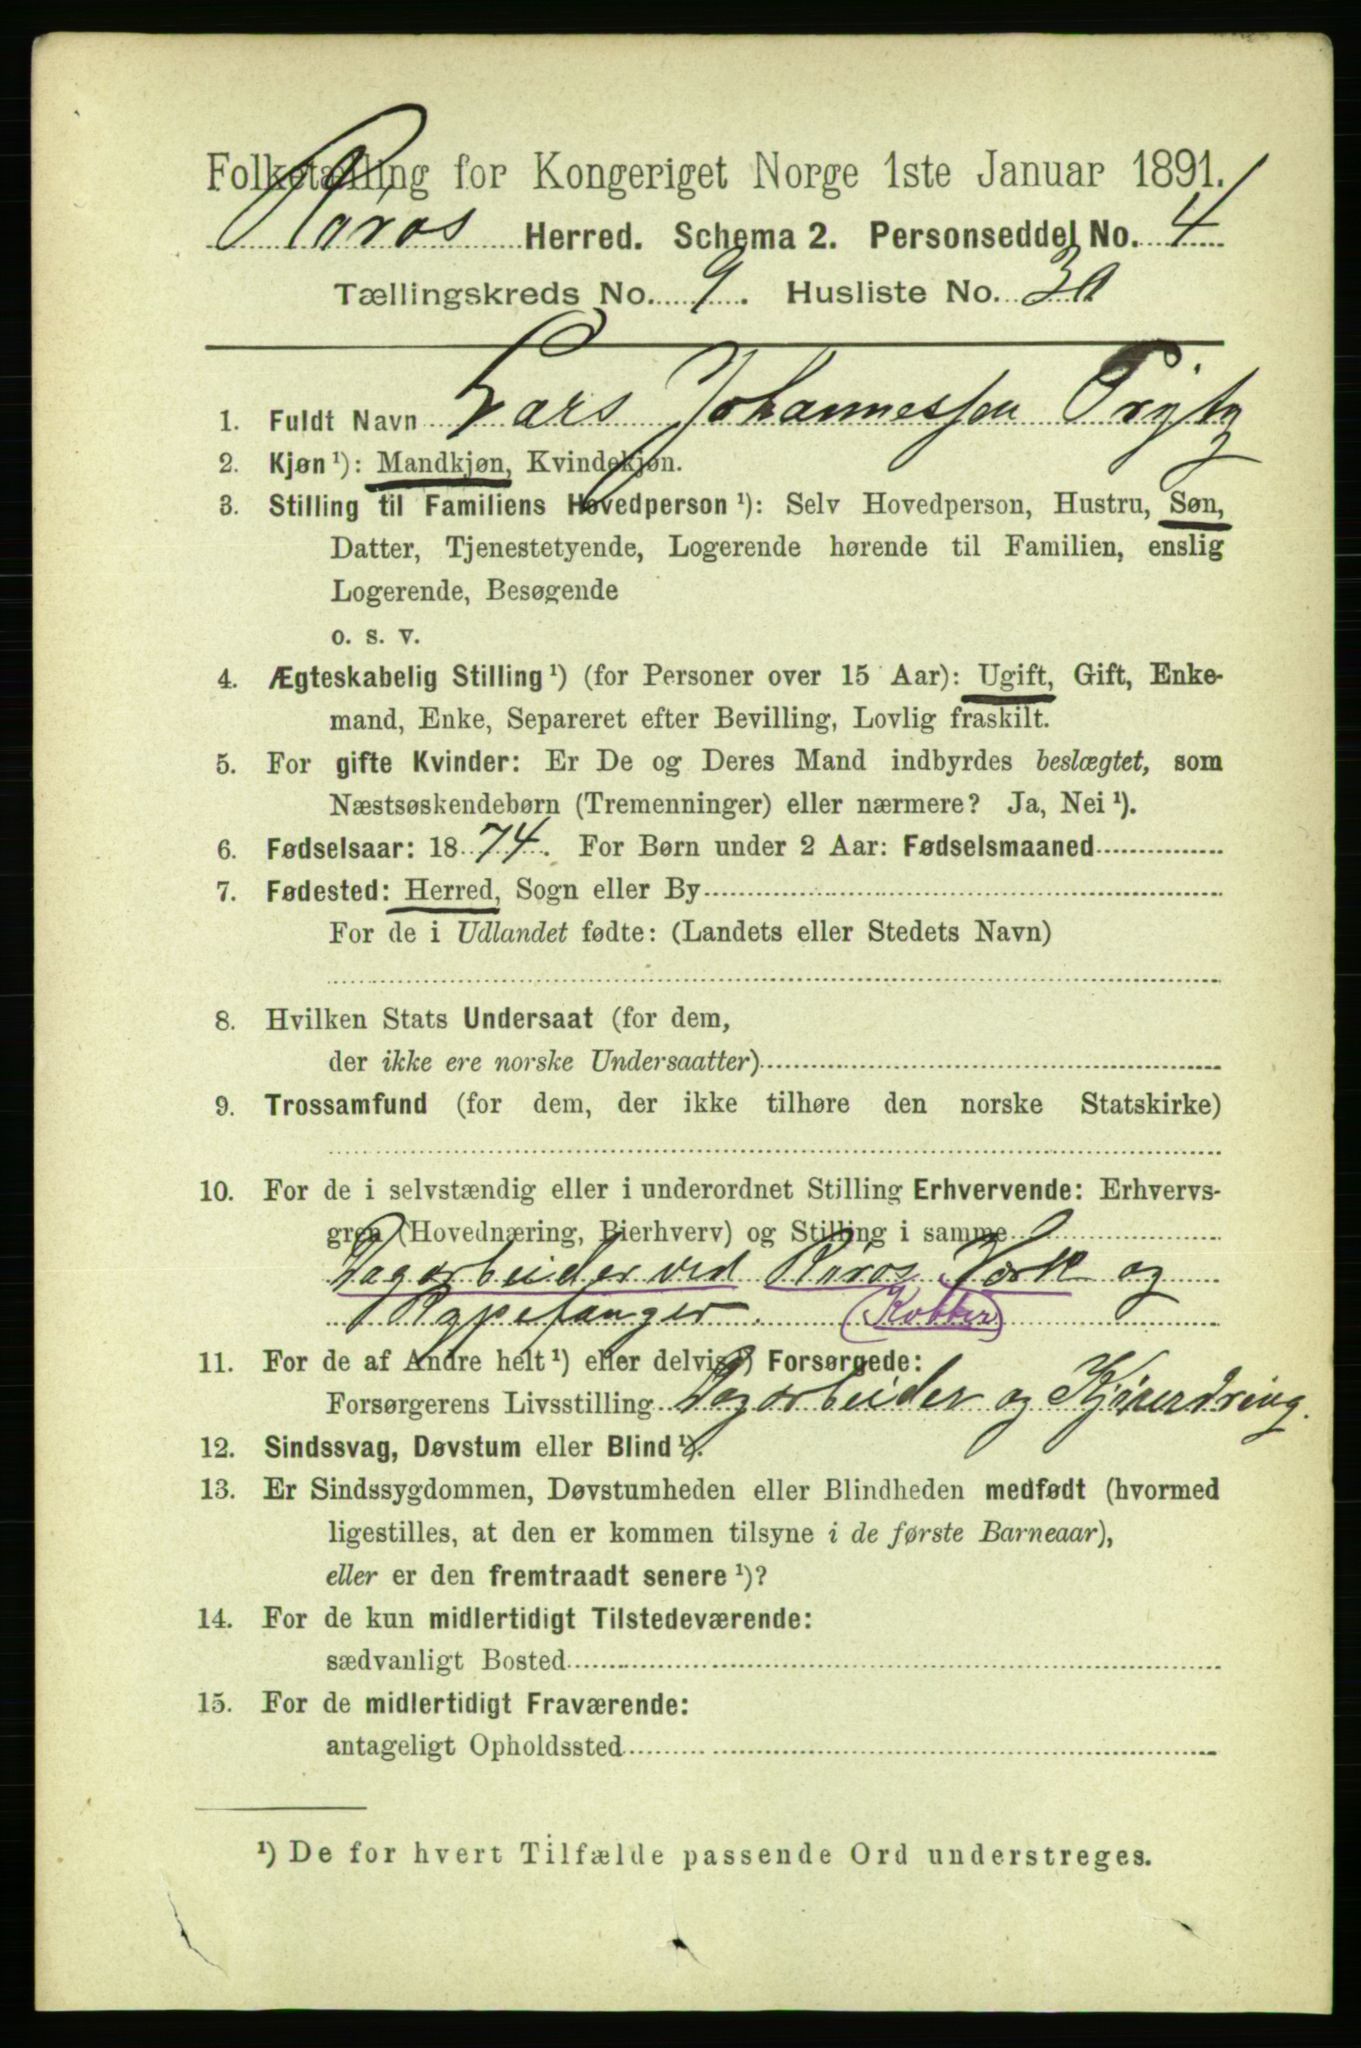 Folketælling for Kongeriget Norge 1ste Januar 1891.
Røros Herred. Schema 2. Personseddel No. 4
Tællingskreds No. 9. Husliste No. 30
1. Fuldt Navn Lars Johannessen Prytz
2. Kjøn ¹): Mandkjøn, Kvindekjøn.
3. Stilling til Familiens Hovedperson ¹): Selv Hovedperson, Hustru, Søn,
Datter, Tjenestetyende, Logerende hørende til Familien, enslig
Logerende, Besøgende
o. s. v.
4. Ægteskabelig Stilling ¹) (for Personer over 15 Aar): Ugift, Gift, Enke-
mand, Enke, Separeret efter Bevilling, Lovlig fraskilt.
5. For gifte Kvinder: Er De og Deres Mand indbyrdes beslægtet, som
Næstsøskendebørn (Tremenninger) eller nærmere? Ja, Nei ¹).
6. Fødselsaar: 1874. For Børn under 2 Aar: Fødselsmaaned
7. Fødested: Herred, Sogn eller By
For de i Udlandet fødte: (Landets eller Stedets Navn)
8. Hvilken Stats Undersaat (for dem,
der ikke ere norske Undersaatter)
9. Trossamfund (for dem, der ikke tilhøre den norske Statskirke)
10. For de i selvstændig eller i underordnet Stilling Erhvervende: Erhvervs-
gren (Hovednæring, Bierhverv) og Stilling i samme
Dagarbeider ved Røros Værk og
Rypefanger. (Kobber)
11. For de af Andre helt ¹) eller delvis ¹) Forsørgede:
Forsørgerens Livsstilling Dagarbeider og Kjøredring.
12. Sindssvag, Døvstum eller Blind ¹).
13. Er Sindssygdommen, Døvstumheden eller Blindheden medfødt (hvormed
ligestilles, at den er kommen tilsyne i de første Barneaar),
eller er den fremtraadt senere ¹)?
14. For de kun midlertidigt Tilstedeværende:
sædvanligt Bosted
15. For de midlertidigt Fraværende:
antageligt Opholdssted
¹) De for hvert Tilfælde passende Ord understreges.